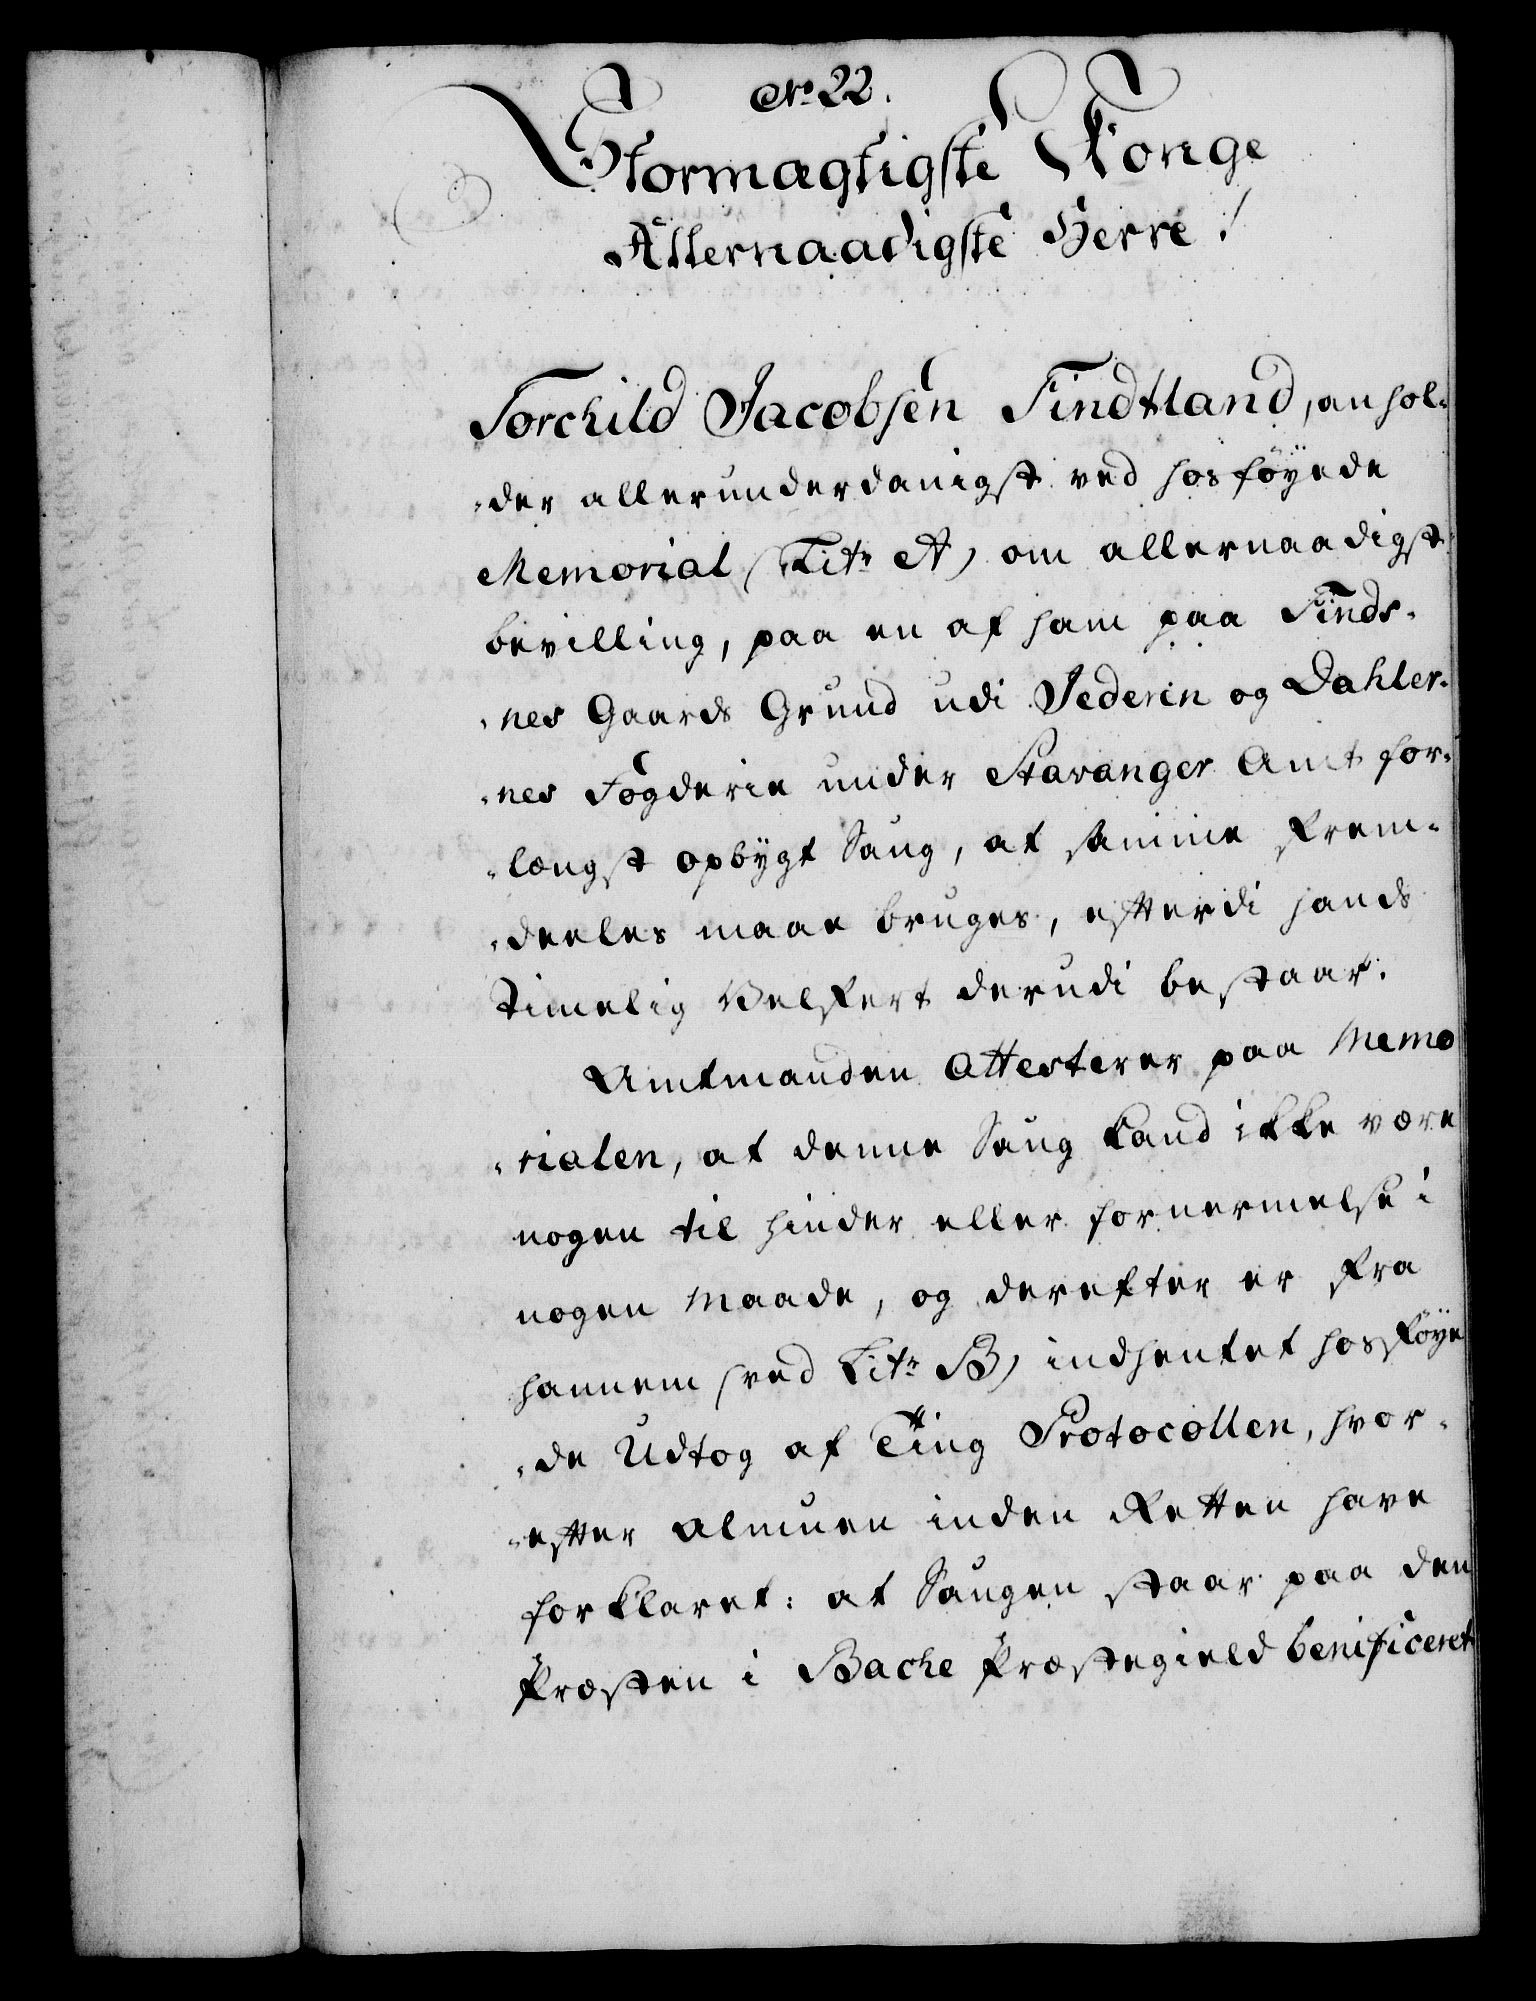 No 22.
Stormægtigste Konge
Allernaadigste Herre!
Torchild Jacobsen Tindtland, anhol-
-der allerunderdanigst ved hosføyede
Memorial (Litr A) om allernaadigst
bevilling, paa en af ham paa Tinds-
-nes Gaards Grund udi Jederen og Dahler-
-nes Fogderie under Stavanger Amt for-
-længst opbygt Saug, at samme frem-
-deeles maae bruges, efterdi hands
timelig Velfert derudi bestaar.
Amtmanden Attesterer paa Memo
-rialen, at denne Saug kand ikke være
nogen til hinder eller fornermelse i
nogen Maade, og derefter er fra
hannem (ved Litr B) indhentet hosføye
-de Udtog af Ting Protocollen, hvor-
-efter Almuen inden Retten have
forklaret: at Saugen staar paa den
Præsten i Bache Præstegield benificeret